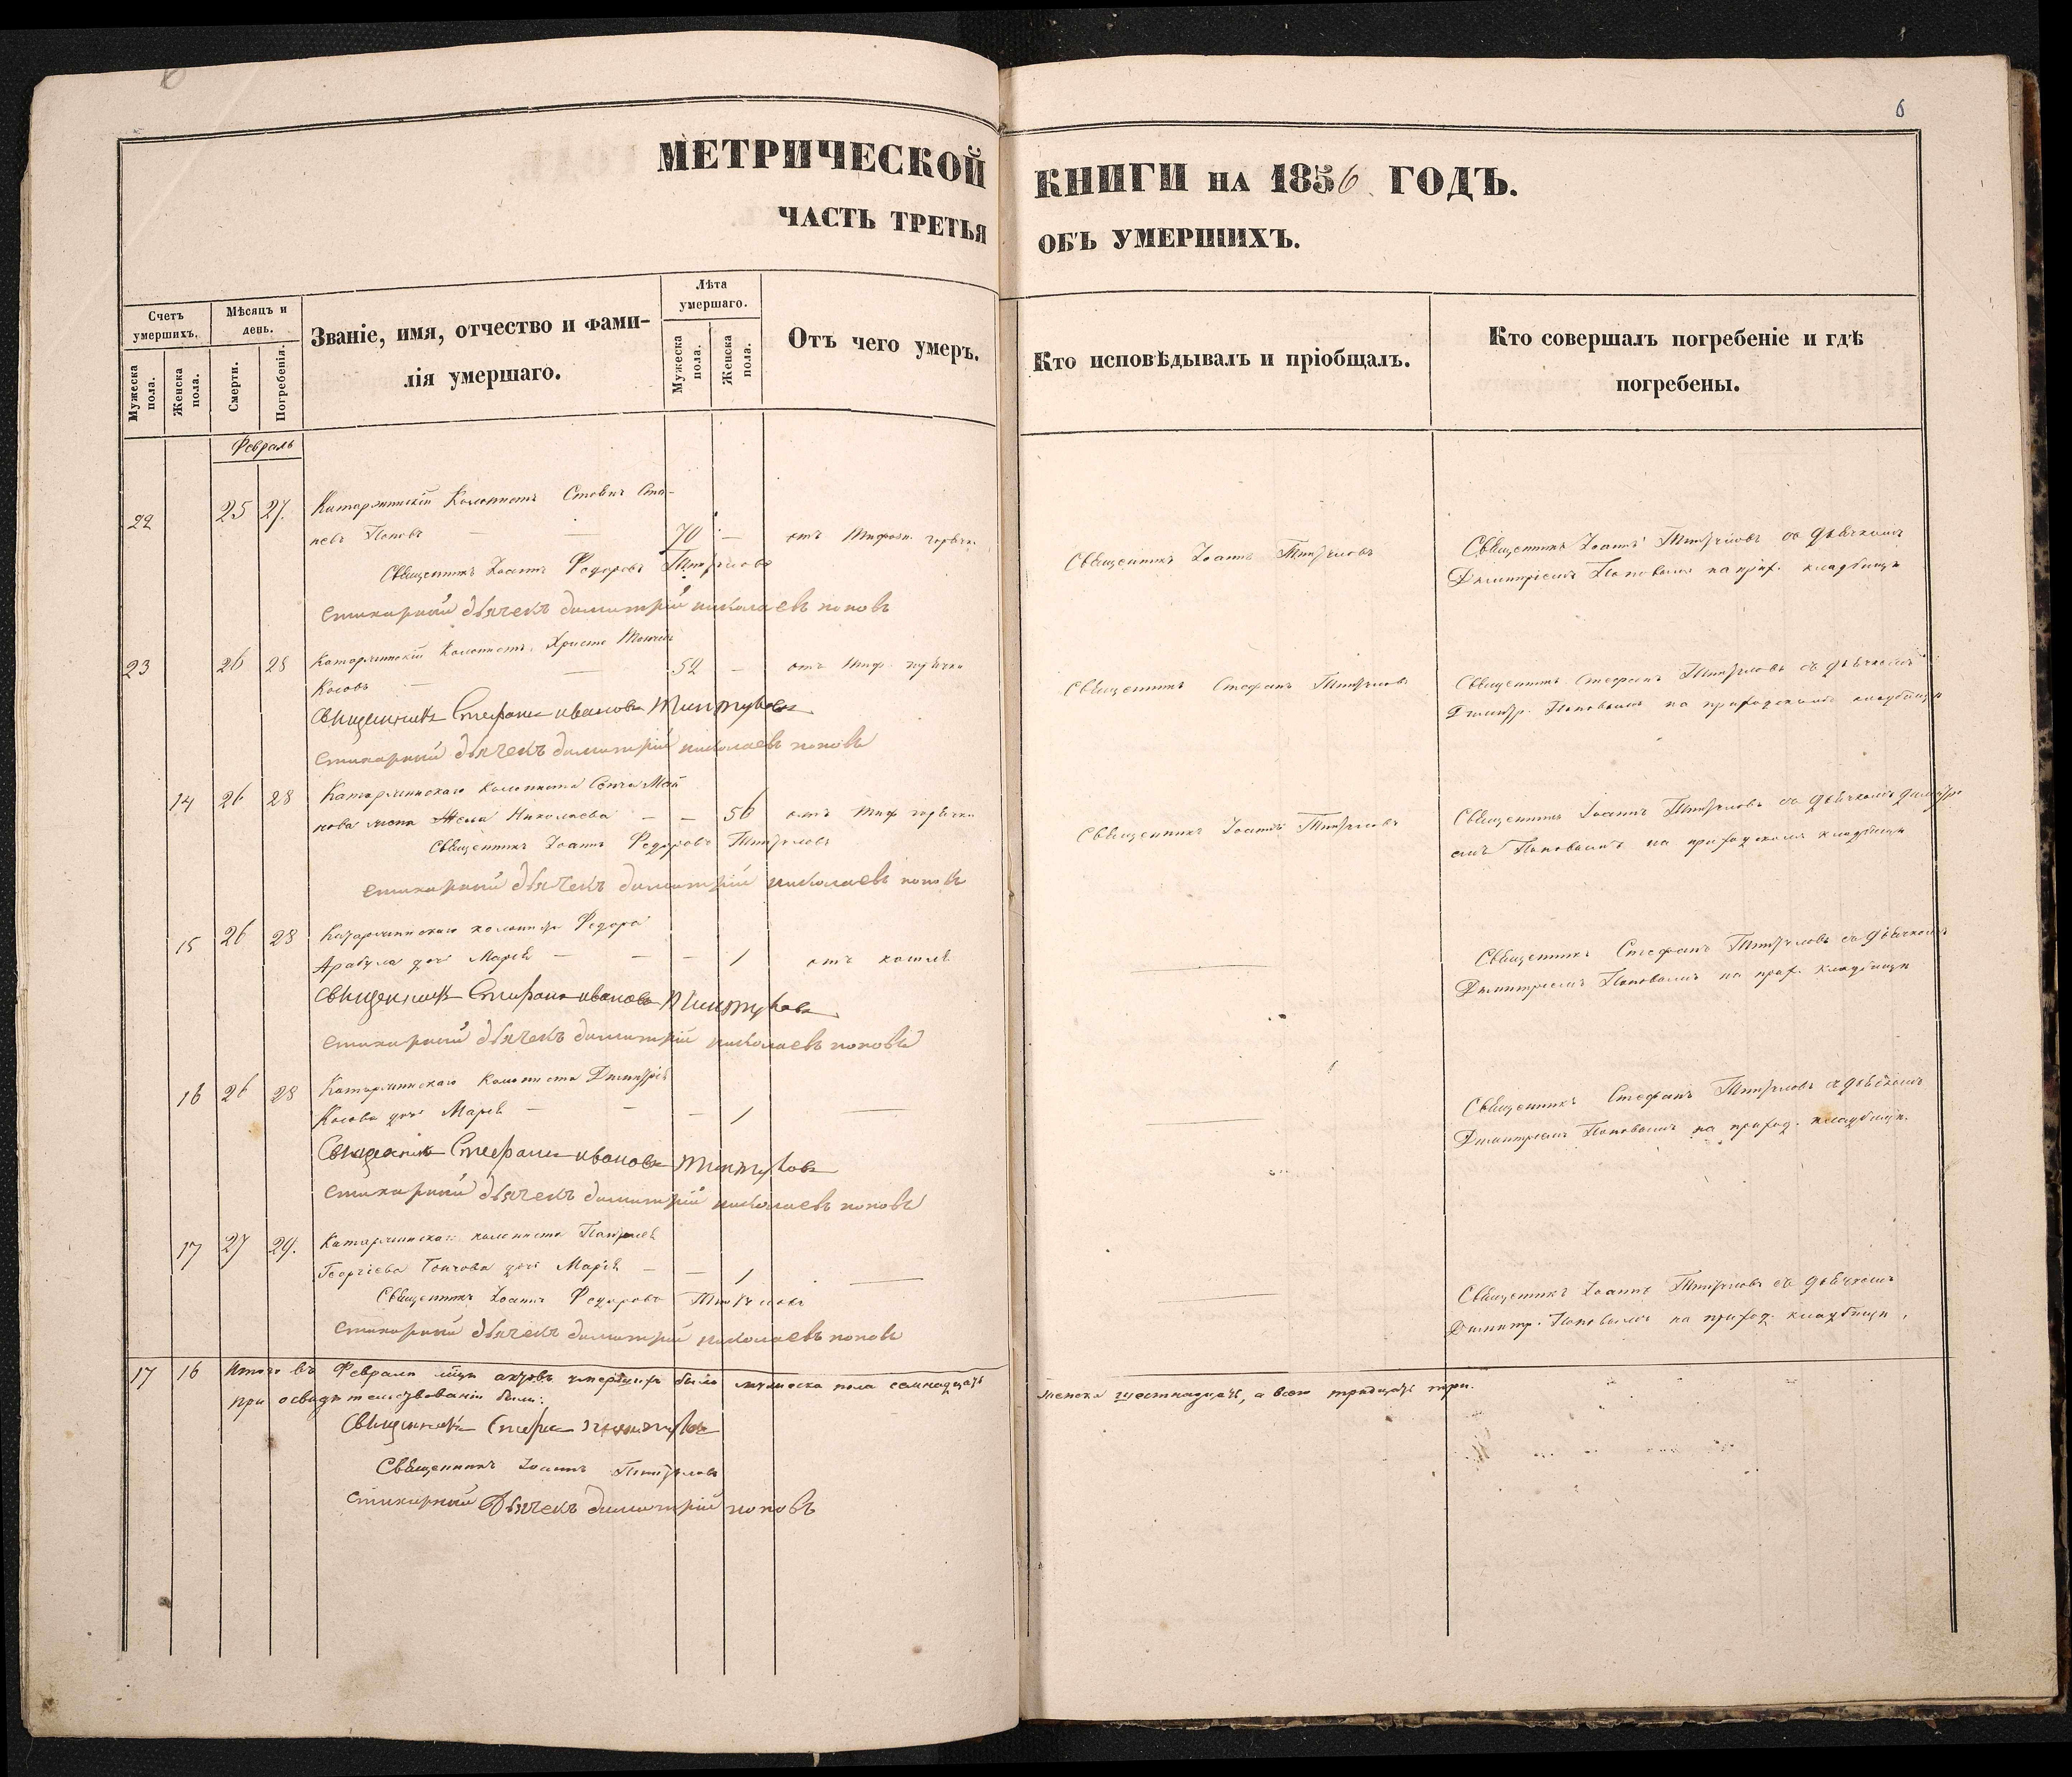 6
МЕТРИЧЕСКОЙ КНИГИ НА 1856 ГОДЪ.
ЧАСТЬ ТРЕТЬЯ ОБЪ УМЕРШИХЪ.
Счетъ умершихъ.
Мужеска пола.
Женска пола.
Мѣсяцъ и день.
Смерти.
Погребенія.
Званіе, имя, отчество и фами-
лія умершаго.
Лѣта умершаго.
Мужеска пола.
Женска пола.
Отъ чего умеръ.
Кто исповѣдывалъ и пріобщалъ.
Кто совершалъ погребеніе и гдѣ
погребены.
Февраль
22 25 27. Катаржинскій Колонистъ
Поповъ — — 70 — отъ горячки
Священникъ Іоаннъ
Священникъ Іоаннъ со дьячкомъ
Димитріемъ Поповымъ на прих. кладбищѣ
Священникъ Іоаннъ Федоровъ
Стихарный дьячекъ димитрій николаевъ поповъ
23 26 28 Катаржинскій Колонистъ Христо
Косовъ — — 52 — отъ тиф. горячки
Священникъ Стефанъ
Священникъ Стефанъ съ дьячкомъ
Димитр. Поповымъ на приходскомъ кладбищѣ
Священникъ Стефанъ ивановъ
Стихарный дьячекъ димитрій николаевъ поповъ
14 26 28 Катаржинскаго колониста
жена Николаева — — 56 отъ тиф горячки
Священникъ Іоаннъ
Священникъ Іоаннъ со дьячкомъ димитрі
емъ Поповымъ на приходскомъ кладбищѣ
Священникъ Іоаннъ Федоровъ
Стихарный дьячекъ димитрій николаевъ поповъ
15 26 28 Катаржинскаго колонист Федора
дочь Марія — — — 1 отъ кашля
Священникъ Стефанъ со дьячкомъ
Димитріемъ Поповымъ на прих. кладбищѣ
Священникъ Стефанъ ивановъ
Стихарный дьячекъ димитрій николаевъ поповъ
16 26 28 Катаржинскаго Колониста Димитрія
Косова дочь Марія — — — 1 —
Священникъ Стефанъ съ дьячкомъ
Димитріемъ Поповымъ на приход. кладбищѣ.
Священникъ Стефанъ ивановъ
Стихарный дьячекъ димитрій николаевъ поповъ
17 27 29. Катаржинскаго колониста
Георгіева дочь Марія — — 1 —
Священникъ Іоаннъ со дьячкомъ
Димитр. Поповымъ на приход. кладбищѣ.
Священникъ Іоаннъ Федоровъ
Стихарный дьячекъ димитрій николаевъ поповъ
17 16 Итого въ Февралѣ мцѣ умершихъ было мужеска пола семнадцать
женска шестнадцать, а всего тридцать три.
при освидѣтельствованіи были:
Священникъ
Священникъ Іоаннъ
Стихарный Дьячекъ димитрій поповъ